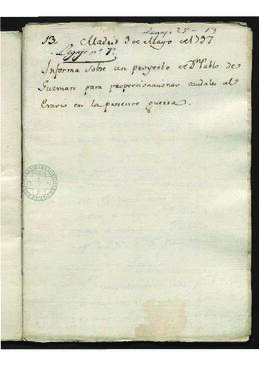 Legajo 25 - 13
13. Madrid 3 de Mayo de 1797
Legajo nº 7º
Informa sobre un proyecto de Dn. Pablo de
Guzman para proporcionar caudales al
Erario en la presente guerra.